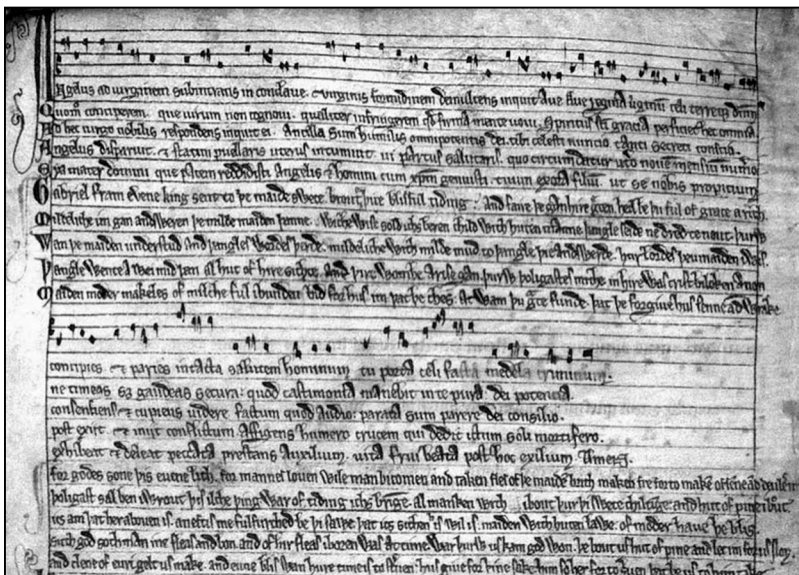 Angelus ad virginem subintrans in conclave. virginis formidinem demulcens inquit aue Aue regina uirginum celi terreque dnm
Quomo conciperem. que uirum non cognoui. qualiter infringerem qd firma mente uoui. Spiritus sci gracia perficiet hec omnia
Ad hec uirgo nobilis respondens inquit ei. Ancilla sum humilis omnipotentis dei. tibi celesti nuncio tanti secreti conscio
Angelus disparuit. & statim puellaris uterus intumuit ui partus salutaris. quo circumdatur utero nouem mensium numero
Eya mater domini que pacem reddidisti Angelis & homini cum xpm genuisti. tuum exora filium. ut se nobis propicium
Gabriel fram evene king sent to þe maide swete. brout hire blisful tiding. And faire he gan hire greten. heil be þu ful of grace arith
Mildeliche im gan andsweren þe milde maiden þanne. Wichewise sold ichs beren child with huten manne. þangle seide ne dred te nout. þurw
Wan þe maiden understud and þangles wordes herde. mildeliche with milde mud to þangle hie andswerde. hur lordes þeumaiden
þangle wente awei mid þan al hut of hire sichte. And hire wombe arise gan þurw þoligastes mithe. in hire wes crist biloken anon
Maiden moder makeles of milche ful ibunden bid for hus im þat þe ches. at wam þu grace funde. þat he forgive hus senne and wrake
concipies & paries intacta salutem hominum tu porta celi facta medela criminum.
ne timeas sz gaudeas secura. quod castimonia manebit in te pura. dei potencia.
consenciens & cupiens uidere factum quod audio. parata sum parere dei consilio.
post exit. & iniit conflictum Affigens humero crucem qui dedit ictum soli mortifero.
exhibeat & deleat peccata prestans Auxilium. uita frui beata post hoc exilium. Amen.
for godes sone þis euene lich. for mannes louen wile man bicomen and taken fles of þe maide brich. maken fre forto
þoligast sal ben iwrout þis ilche þing war of tiding ichs bringe. al manken wrth ibout þur þi swete childinge. and hut of pine
us am þat her abouen is. anentis me fulfurthed be þi sawe. þat ics
suich god gothman ine fleas and bon. and of hir fleas iboren was at time. war þurw us kam god won. he bout us hut of pine and let im for us slon.
and clene of euri gelt us make. and evne blis wan hure time is to steruen hus giue for þine sake him so her for to seruen